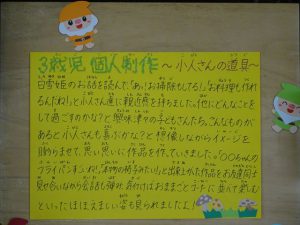 3歳児 個人制作 ～小人さんの道具～
白雪姫のお話を読んで、「あ！お掃除もしてる！」「お料理も作れ
るんだね！」と小人さん達に親近感を持ちました。「他にどんなことを
して過ごすのかな？」と興味津々の子どもさんたち。こんなものが
あると小人さんも喜ぶかな？と想像しながらイメージを
膨らませて、思い思いに作品を作っていきました。「○○ちゃんの
フライパンすごいね！」「本物の椅子みたい！」と出来上がった作品をお友達同士
見せ合いながら会話も弾み、片付けはおままごとコーナーに並べて楽しむ
といったほほえましい姿も見られましたよ！